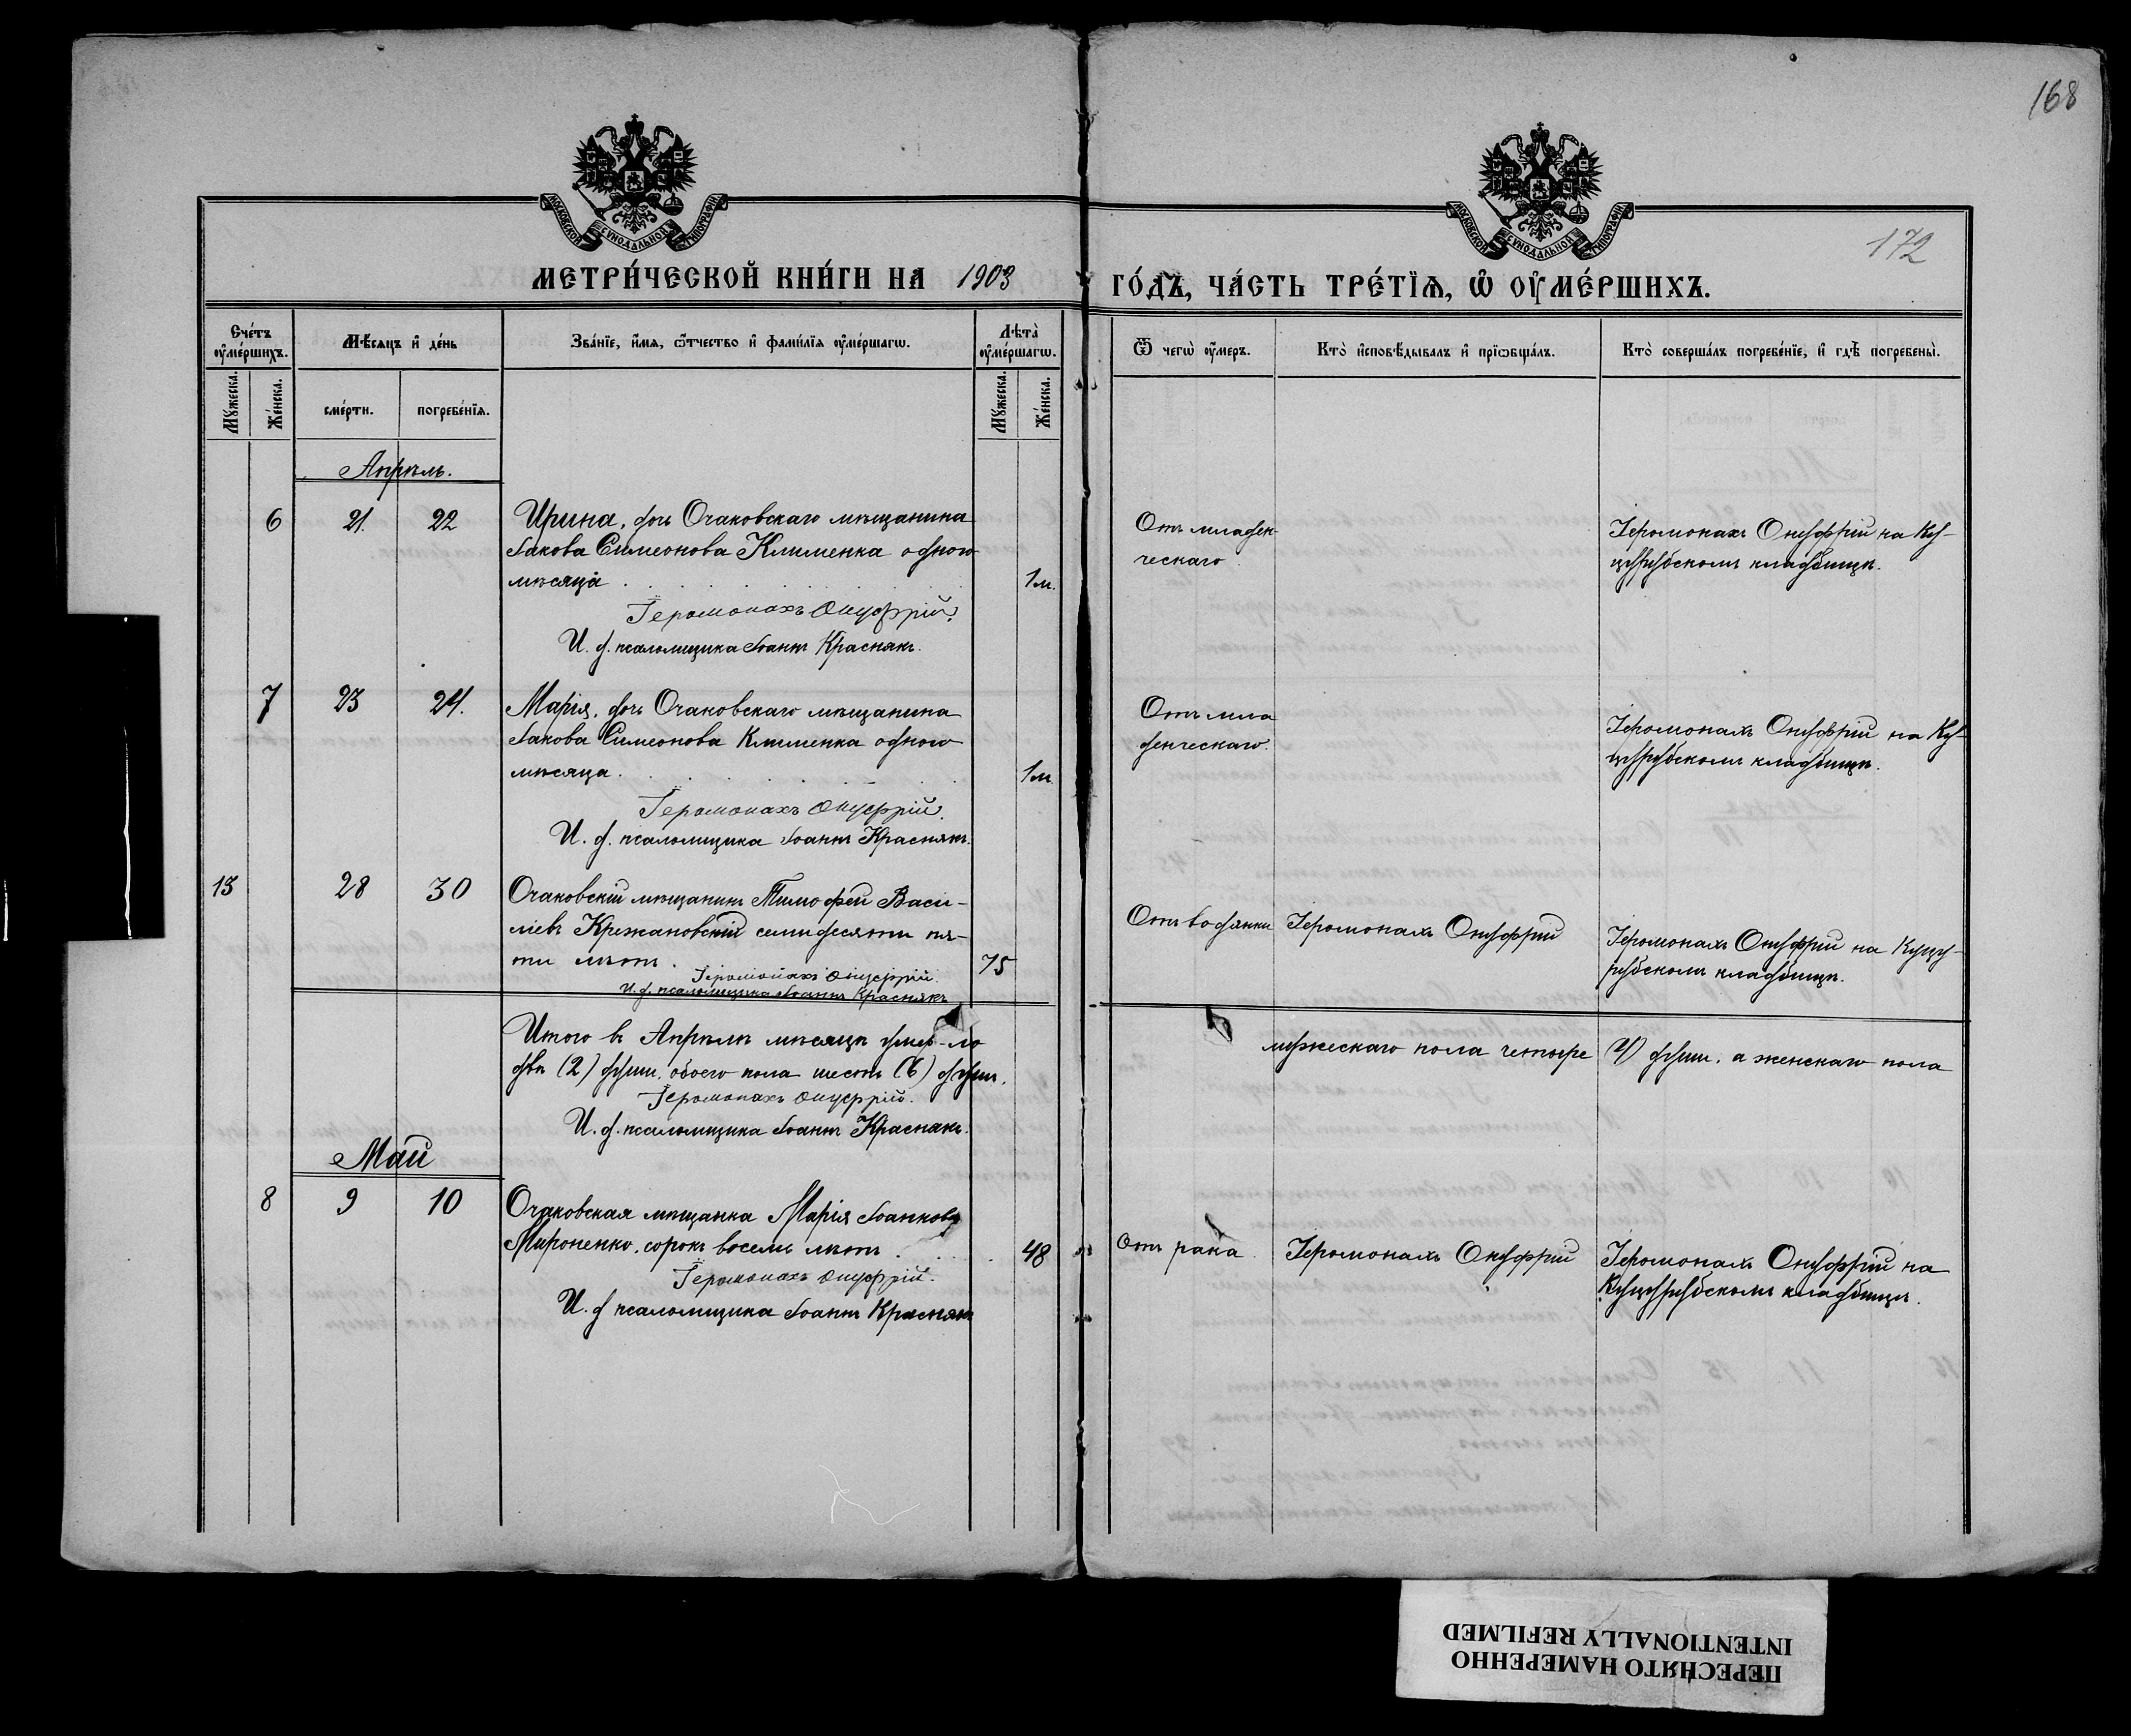 168
172
МОСКОВСКОЙ СѴНОДАЛЬНОЙ ТИПОГРАФІИ
МОСКОВСКОЙ СѴНОДАЛЬНОЙ ТИПОГРАФІИ
МЕТРИ́ЧЕСКОЙ КНИ́ГИ НА 1903 ГО́ДЪ, ЧА́СТЬ ТРЕ́ТЇѦ, Ѡ҆ ОУ҆МЕ́РШИХЪ.
Сче́тъ оу҆ме́ршихъ.
Мꙋ́жеска.
Же́нска.
Мѣ́сяцъ и҆ де́нь
сме́рти.
погребе́нїя.
Зва́нїе, и҆́мя, ѻ҆́тчество и҆ фами́лїя оу҆ме́ршагѡ.
Лѣ́та оу҆ме́ршагѡ.
Мꙋ́жеска.
Же́нска.
Ѿ чегѡ̀ оу҆́меръ.
Кто̀ и҆сповѣ́дывалъ и҆ прїѡбща́лъ.
Кто̀ соверша́лъ погребе́нїе, и҆ гдѣ̀ погребены̀.
Апрѣль.
6 21 22 Ирина, дочь Очаковскаго мѣщанина
Іакова Симеонова Клименка одного
мѣсяца 1 м.
Іеромонахъ Онуфрій.
И. д. псаломщика Іоаннъ Краснякъ.
Отъ младен-
ческаго
Іеромонахъ Онуфрій на Ку-
цурубскомъ кладбищѣ.
7 23 24. Марія, дочь Очаковскаго мѣщанина
Іакова Симеонова Клименка одного
мѣсяца. 1 м
Іеромонахъ Онуфрій.
И. д. псаломщика Іоаннъ Краснякъ.
Отъ мла
денческаго.
Іеромонахъ Онуфрій на Ку-
цурубскомъ кладбищѣ.
13 28 30 Очаковскій мѣщанинъ Тимофей Васи-
ліевъ Крежановскій семидесяти пя-
ти лѣтъ. 75
Іеромонахъ Онуфрій.
И. д. псаломщика Іоаннъ Краснякъ
Отъ водянки Іеромонахъ Онуфрій
Іеромонахъ Онуфрій на Куцу-
рубскомъ кладбищѣ.
Итого въ Апрѣлѣ мѣсяцѣ умер-ло мужескаго пола четыре 4) души, а женскаго пола
двѣ (2) души, обоего пола шесть (6) душъ.
Іеромонахъ Онуфрій.
И. д. псаломщика Іоаннъ Краснякъ.
Май
8 9 10 Очаковская мѣщанка Марія Іоаннова
Мироненко, сорокъ восемь лѣтъ. 48
Іеромонахъ Онуфрій.
И. д псаломщика Іоаннъ Краснякъ
Отъ рака. Іеромонахъ Онуфрій
Іеромонахъ Онуфрій на
Куцурубскомъ кладбищѣ.
ПЕРЕСНЯТО НАМЕРЕННО
INTENTIONALLY REFILMED